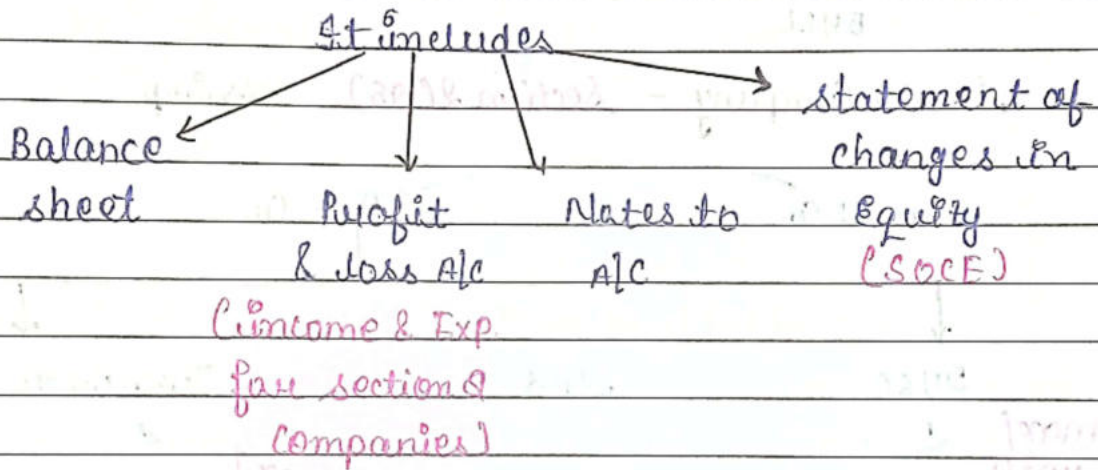 It includes
Balance
sheet
Profit
& loss A/C
(income & Exp.
for section 8
companies)
Notes to
A/C
statement of
changes in
Equity
(SOCE)